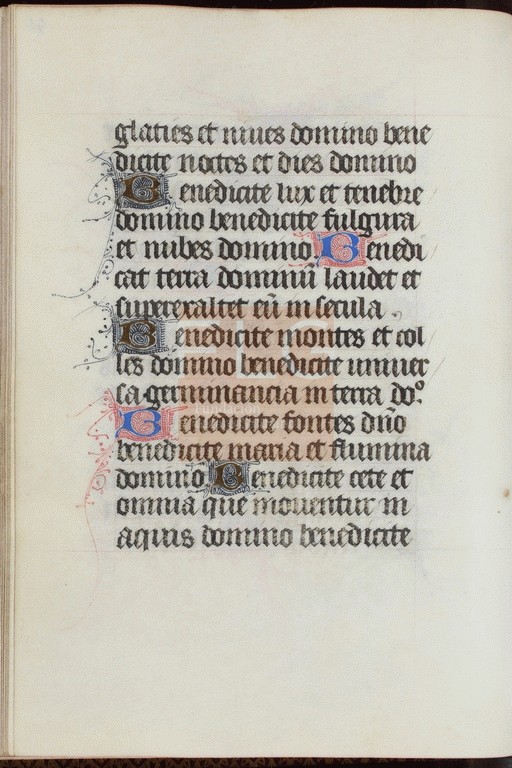 glacies et niues domino bene
dicite noctes et dies domino
Benedicite lux et tenebre
domino benedicite fulgura
et nubes domino Benedi
cat terra dominū laudet et
superexaltet eū in secula.
Benedicite montes et col
les domino benedicite uniuer
sa germinancia in terra do°.
Benedicite fontes dn̄o
benedicite maria et flumina
domino Benedicite cete et
omnia que mouentur in
aquis domino benedicite
FLG
Fundación